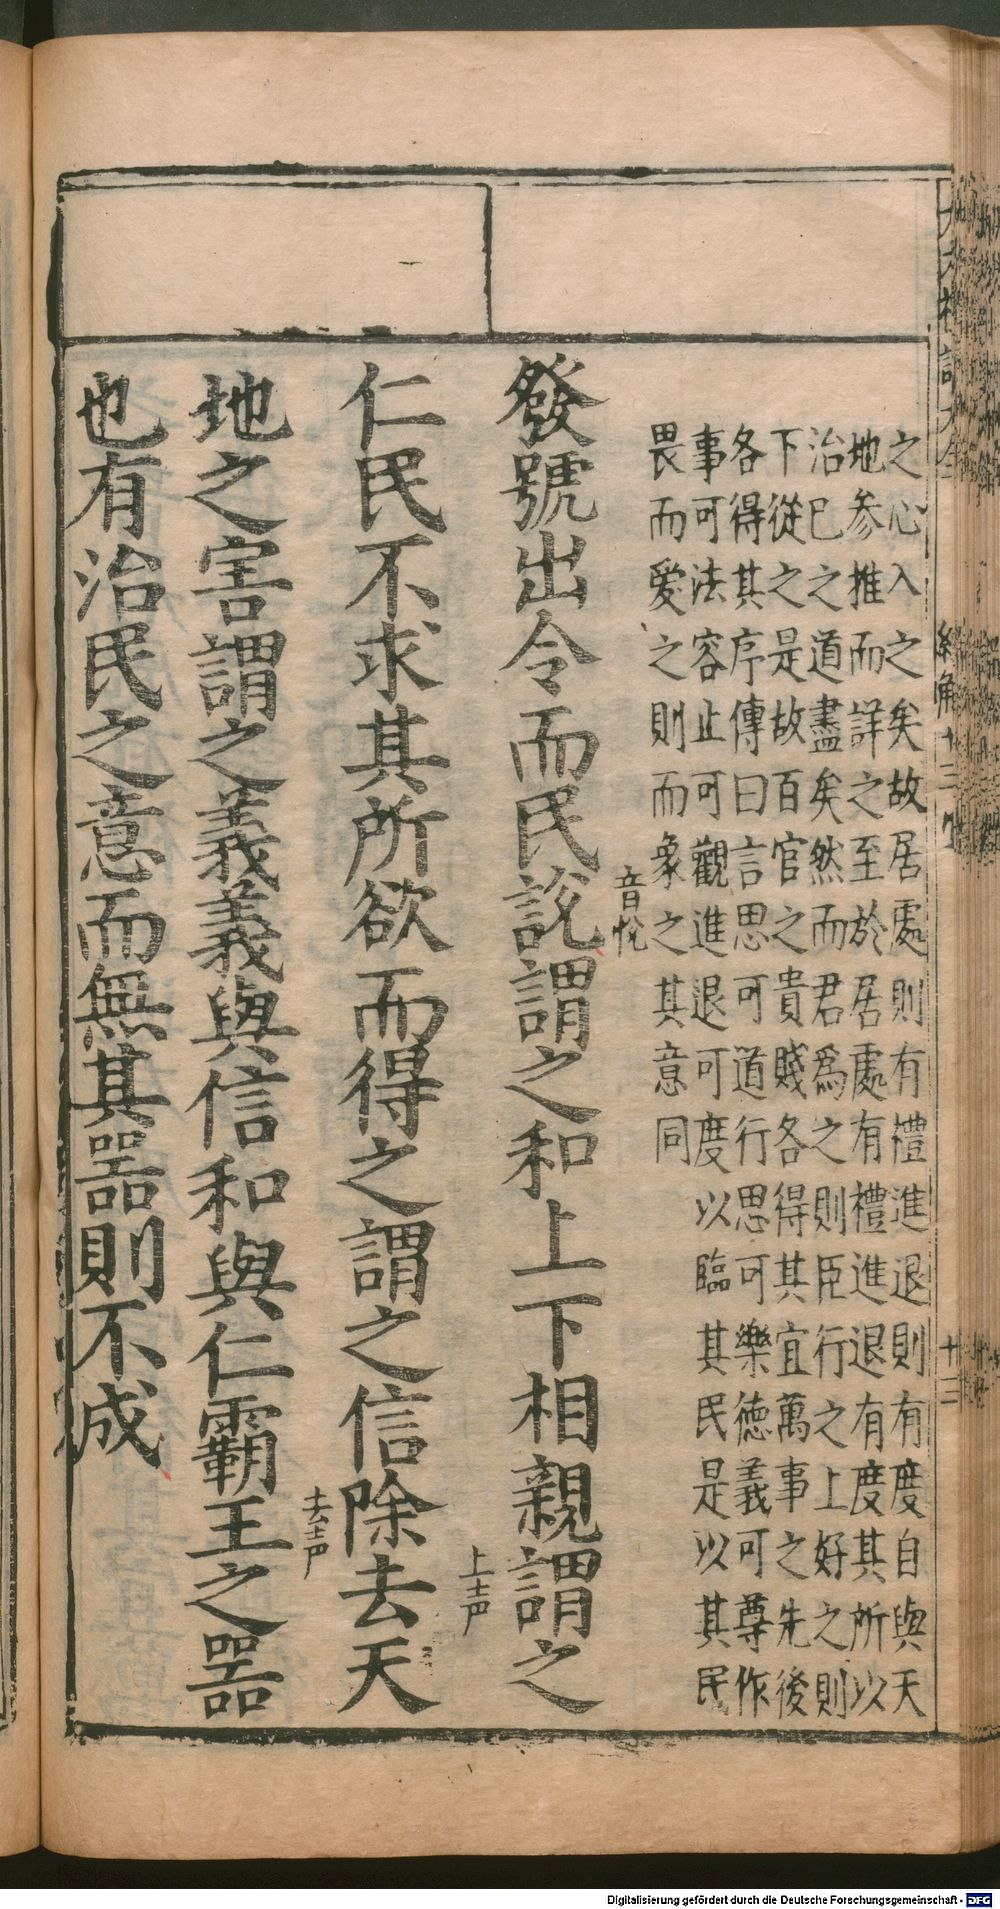 之心入之矣故居處則有禮進退則有度自與天
地參推而詳之至於居處有禮進退有度其所以
治已之道盡矣然而君為之則臣行之上好之則
下從之是故百官之貴賤各得其宜萬事之先後
各得其序傳曰言思可道行思可樂德義可尊作
事可法容止可觀進退可度以臨其民是以其民
畏而愛之則而象之其意同
音悅
發號出令而民說謂之和上下相親謂之
上声
仁民不求其所欲而得之謂之信除去天
去声
地之害謂之義義與信和與仁霸王之器
也有治民之意而無其器則不成
十三
Digitalisierung gefördert durch die Deutsche Forschungsgemeinschaft - DFG